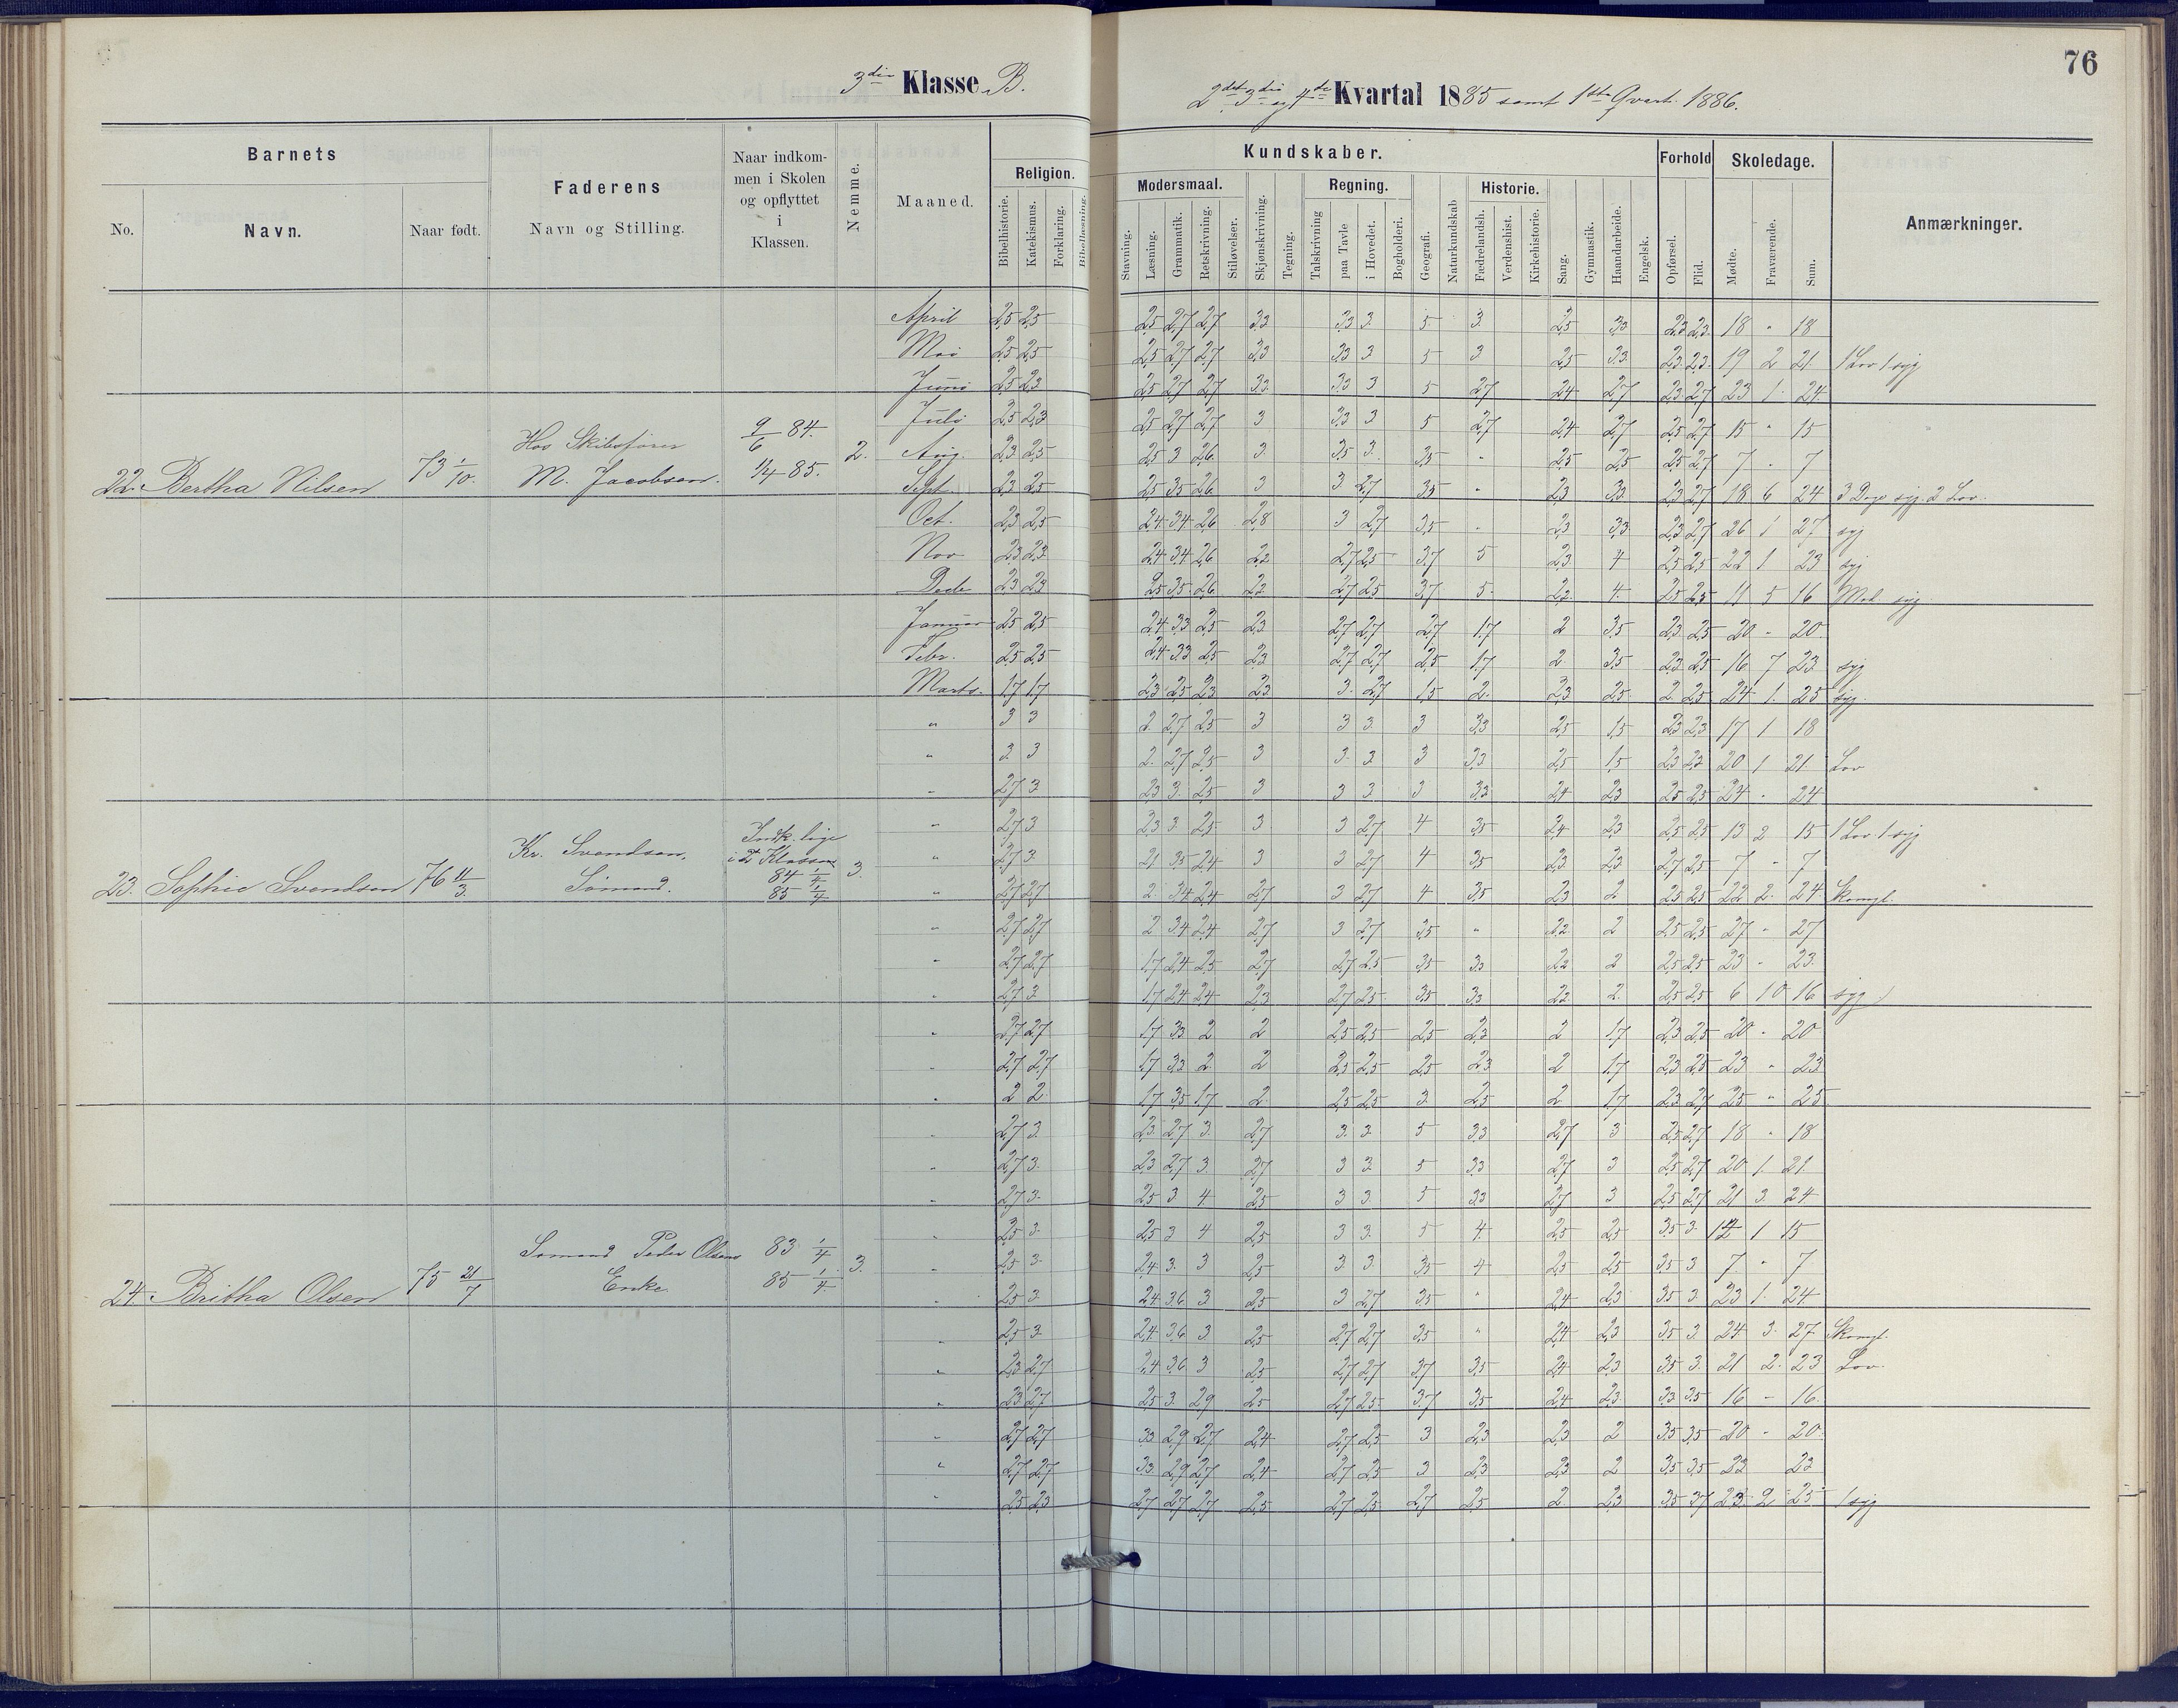 76
3die Klasse B.
2det 3die og 4de Kvartal 1885 samt 1ste Qvart. 1886.
Barnets
No.
Navn.
Naar født.
Faderens
Navn og Stilling.
Naar indkom-
men i Skolen
og opflyttet
i
Klassen.
Nemme.
Maaned.
Kundskaber.
Religion.
Bibelhistorie.
Katekismus.
Forklaring.
Bibellæsning.
Modersmaal.
Stavning.
Læsning.
Grammatik.
Retskrivning.
Stiløvelser.
Skjønskrivning.
Tegning.
Regning.
Talskrivning
paa Tavle
i Hovedet.
Bogholderi.
Geografi.
Naturkundskab
Historie.
Fædrelandsh.
Verdenshist.
Kirkehistorie.
Sang.
Gymnastik.
Haandarbeide.
Engelsk.
Forhold
Opførsel.
Flid.
Skoledage.
Mødte.
Fraværende.
Sum.
Anmærkninger.
22. Bertha Nilsen 73 1/10. Hos Skibsfører M. Jacobsen. 9/6 84. 1/4 85. 2.
April 2,5 2,5 2,5 2,7 2,7 3,3 3,3 3 5 3 2,5 3,3 2,3 2,3 18 " 18
Mai 2,5 2,5 2,5 2,7 2,7 3,3 3,3 3 5 3 2,5 3,3 2,3 2,3 19 2 21 1 Lov 1 syg
Juni 2,5 2,3 2,5 2,7 2,7 3,3 3,3 3 5 2,7 2,4 2,7 2,3 2,7 23 1 24
Juli 2,5 2,3 2,5 2,7 2,7 3 3,3 3 5 2,7 2,4 2,7 2,5 2,7 15 " 15
Aug. 2,3 2,5 2,5 3 2,6 3 3,5 3 3,5 " 2,5 2,5 2,5 2,7 7 " 7
Sept. 2,3 2,5 2,5 3,5 2,6 3 3 2,7 3,5 " 2,3 3,3 2,3 2,7 18 6 24 3 Dage syg. 2 Lov.
Oct. 2,3 2,5 2,4 3,4 2,6 2,8 3 2,7 3,5 " 2,3 3,3 2,3 2,7 26 1 27 syg
Nov 2,3 2,3 2,4 3,4 2,6 2,2 2,7 2,5 3,7 5 2,3 4 2,5 2,5 22 1 23 syg
Decb 2,3 2,3 2,5 3,5 2,6 2,2 2,7 2,5 3,7 5 2,2 4 2,5 2,5 11 5 16 syg
Januar 2,5 2,5 2,4 3,3 2,5 2,3 2,7 2,7 2,7 1,7 2 3,5 2,3 2,5 20 " 20
Febr. 2,5 2,5 2,4 3,3 2,5 2,3 2,7 2,7 2,5 1,7 2 3,5 2,3 2,5 16 7 23 syg
Marts. 1,7 1,7 2,3 2,5 2,3 2,3 3 2,7 1,5 2 2,3 2,5 2 2,5 24 1 25 syg.
23. Sophie Svendsen 76 11/3. Kr. Svendsen, Sømand. Indk. lige i 2 Klasse 84 1/4 85 1/4 3.
" 3 3 2 2,7 2,5 3 3 3 3 3,3 2,5 1,5 2,3 2,3 17 1 18
" 3 3 2 2,7 2,5 3 3 3 3 3,3 2,5 1,5 2,3 2,3 20 1 21 Lov
" 2,7 3 2,3 3 2,5 3 3 3 3 3,3 2,4 2,3 2,5 2,5 24 " 24
" 2,7 3 2,3 3 2,5 3 3 2,7 4 3,5 2,4 2,3 2,5 2,5 13 2 15 1 Lov 1 syg
" 2,7 3 2,1 3,5 2,4 3 3 2,7 4 3,5 2,3 2,3 2,7 2,5 7 " 7
" 2,7 2,7 2 3,4 2,4 2,7 3 2,7 4 3,5 2,3 2 2,5 2,5 22 2 24
" 2,7 2,7 2 3,4 2,4 2,7 3 2,7 3,5 " 2,2 2 2,5 2,5 27 " 27
" 2,7 2,7 1,7 2,4 2,5 2,7 2,7 2,5 3,5 3,3 2,2 2 2,5 2,5 23 " 23
" 2,7 3 1,7 2,4 2,4 2,3 2,7 2,5 3,5 3,3 2,2 2 2,5 2,5 6 10 16 syg
" 2,7 2,7 1,7 3,3 2 2 2,5 2,5 2,5 2,3 2 1,7 2,3 2,5 20 " 20
" 2,7 2,7 1,7 3,3 2 2 2,5 2,5 2,5 2,3 2 1,7 2,3 2,5 23 " 23
" 2 2 1,7 3,5 1,7 2 2,5 2,5 3 2,5 2 1,7 2,3 2,7 25 " 25
24. Britha Olsen 75 21/7 Sømand Peder Olsens Enke 83 1/4 85 1/4 3.
" 2,7 3 2,3 2,7 3 2,7 3 3 5 3,3 2,7 3 2,5 2,7 18 " 18
" 2,7 3 2,3 2,7 3 2,7 3 3 5 3,3 2,7 3 2,5 2,7 20 1 21
" 2,7 3 2,5 3 4 2,5 3 3 5 3,3 2,7 3 2,5 2,7 21 3 24
" 2,5 3 2,5 3 4 2,5 3 3 5 4 2,5 2,5 3,5 3 14 1 15
" 2,5 3 2,4 3 3 2,5 3 3 3,5 4 2,5 2,5 3,5 3 7 " 7
" 2,5 3 2,4 3,6 3 2,5 3 2,7 3,5 " 2,4 2,3 3,5 3 23 1 24
" 2,5 3 2,4 3,6 3 2,5 2,7 2,7 3,5 " 2,4 2,3 3,5 3 24 3 27
" 2,3 2,7 2,4 3,6 3 2,5 2,7 2,7 3,7 3,5 2,4 2,3 3,5 3 21 2 23 Lov.
" 2,3 2,7 2,5 3 2,9 2,5 2,7 2,5 3,7 3,5 2,4 2,3 3,3 3,5 16 - 16
" 2,7 2,7 3,3 2,9 2,7 2,4 2,7 2,5 3 2,3 2,3 2 3,5 3,5 20 - 20
" 2,7 2,7 3,3 2,9 2,7 2,4 2,7 2,5 3 2,3 2,3 2 3,5 3,5 23 23
" 2,5 2,3 2,7 2,7 2,7 2,5 2,7 2,5 2,7 2,5 2 2,3 3,5 3,7 23 2 25 1 syg